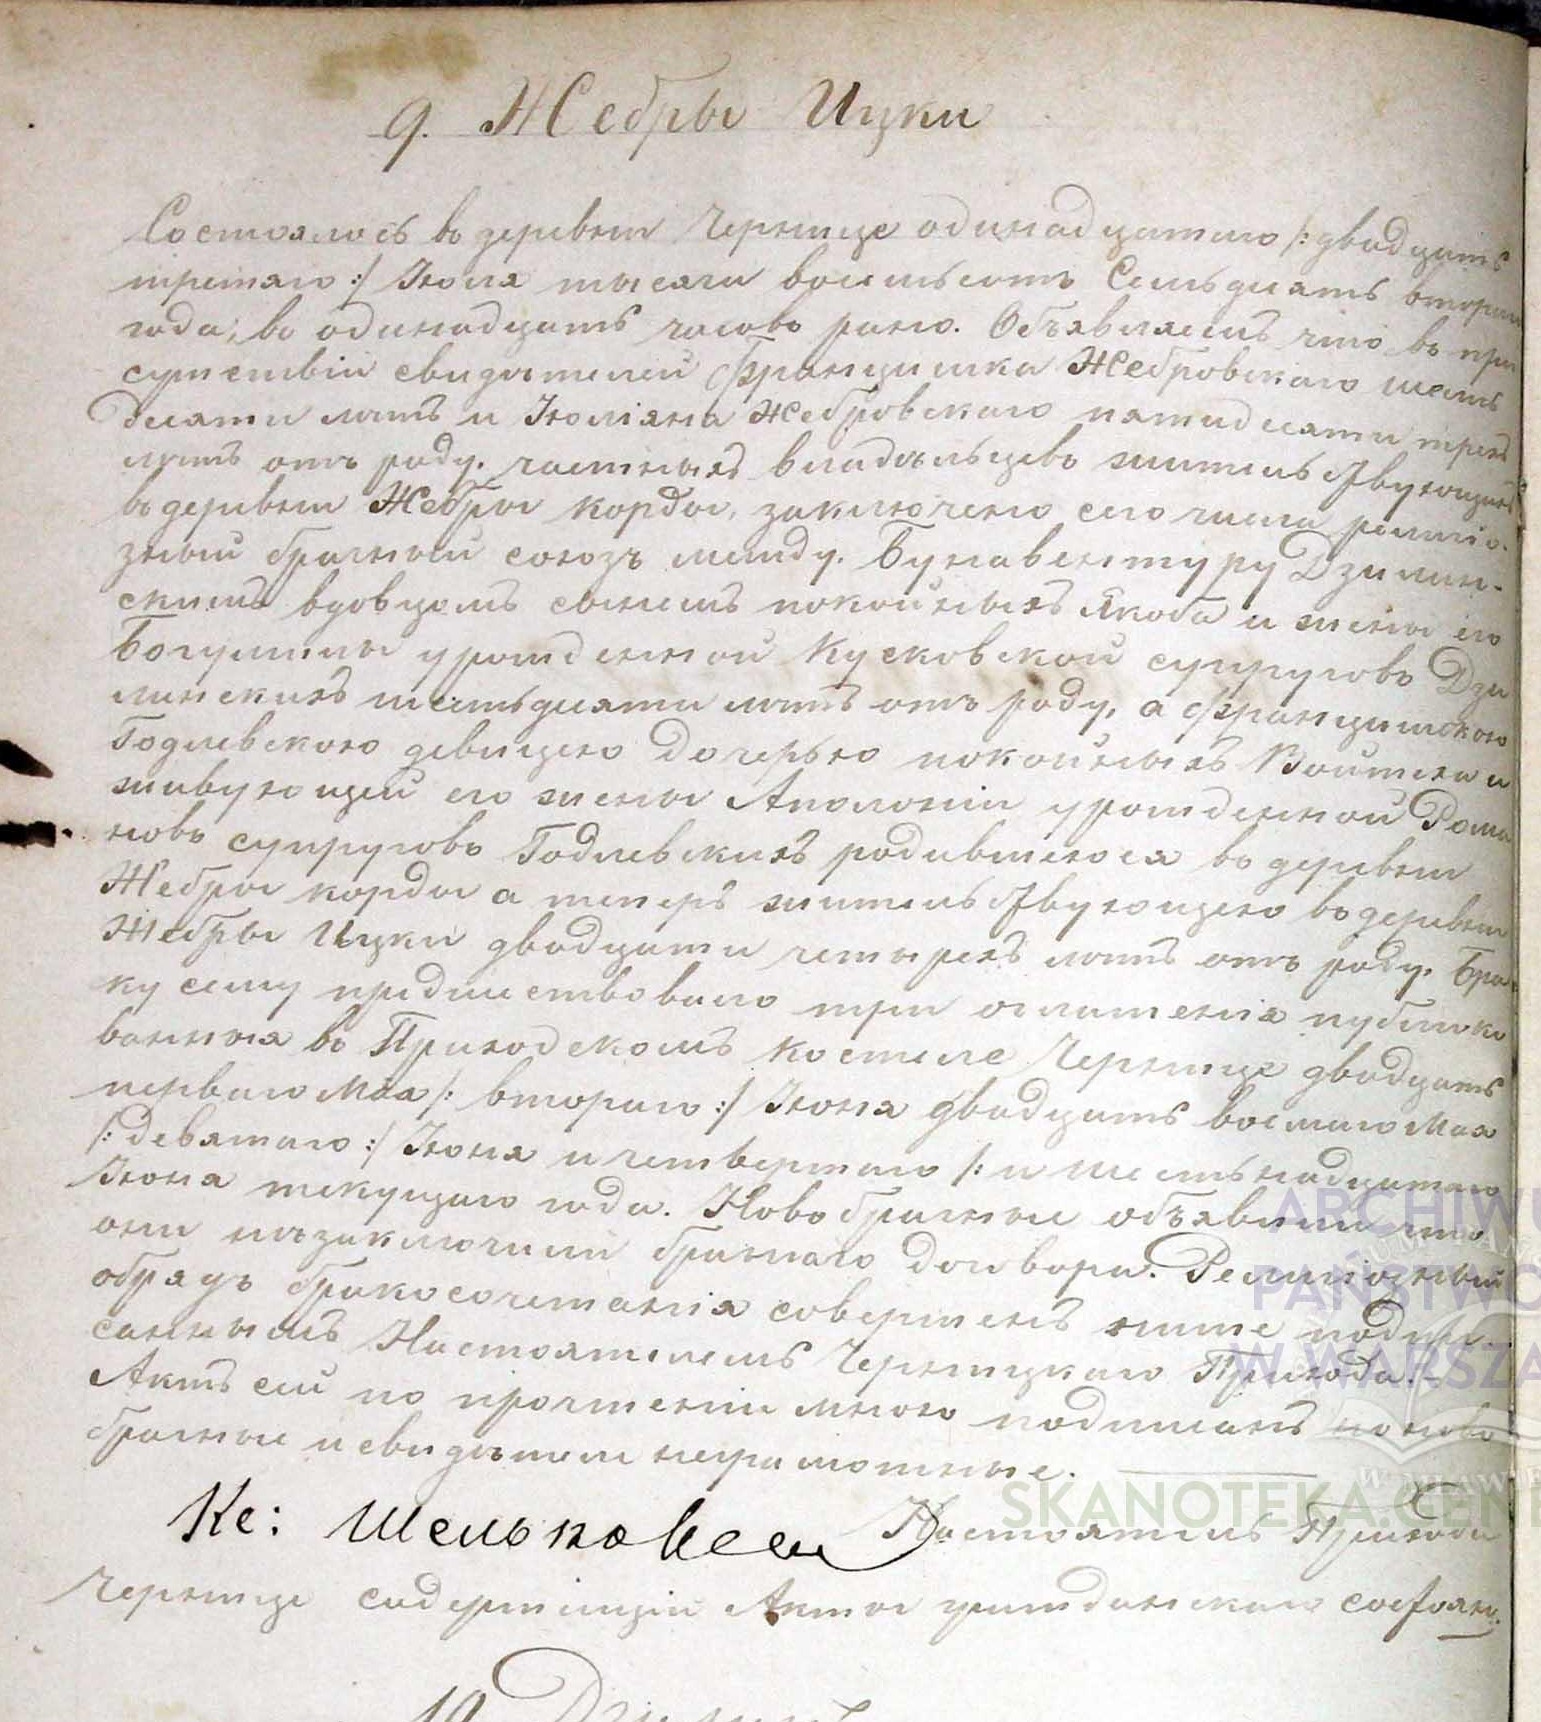 9. Жебры Ицки
Состоялось въ деревни Чернице одинадцатаго /: двадцать
третяго :/ Іюля тысяча восемьсотъ Семьдесятъ втораго
года, въ одинадцать часовъ рано. Объявляемъ что въ при
сутствіи свидѣтелей Францишка Жебровскаго шесть
десяти лѣтъ и Юліяна Жебровскаго пятидесяти трехъ
лѣтъ отъ роду, частныхъ владѣльцевъ жительствующихъ
въ деревни Жебры Корды, заключено сего числа религіо-
зный брачный союзъ между Бунавентуру Дзилин-
скимъ вдовцомъ сыномъ покойныхъ Якоба и жены его
Богумилы урожденной Кусковской супруговъ Дзи
линскихъ шестьдесяти лѣтъ отъ роду, а Францишкою
Годлевскою девицею дочерью покойныхъ Войтеха и
живующей его жены Аполоніи урожденной Рома
новъ супруговъ Годлевскихъ родившеюся въ деревни
Жебры Корды а теперь жительствующею въ деревни
Жебры Ицки двадцати четырехъ лѣтъ отъ роду. Бра
ку сему предшествовало три оглашенія публико
ванныя въ Приходскомъ костеле Чернице двадцать
перваго Мая /: втораго :/ Іюня двадцать восмаго Мая
/: девятаго :/ Іюня и четвертаго /: и шестьнадцатаго
Іюня текущаго года. Новобрачные объявили что
они незаключили брачнаго договора. Религіозный
обрядъ бракосочетанія совершенъ ниже подпи-
саннымъ Настоятелемъ Черницкаго Прихода.-
Актъ сей по прочтеніи мною подписанъ ново
брачные и свидѣтели неграмотные.
Кс: Настоятель Прихода
Чернице содержащій Акты гражданскаго состоян.
10